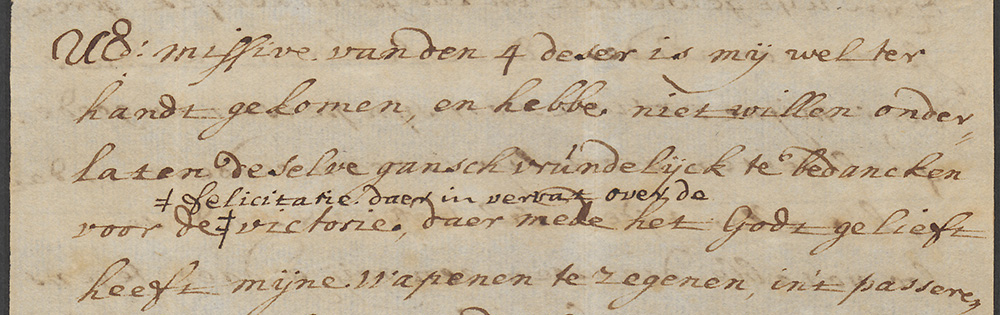 UE: missive van den 4 deser is mij wel ter
handt gekomen, en hebbe niet willen onder,,
laten deselve gansch vrúndelijck te bedancken
‡ felicitatie daer in vervat over de
voor de ‡ victorie, daer mede het Godt gelieft
heeft mijne wapenen te zegenen, in't passeren